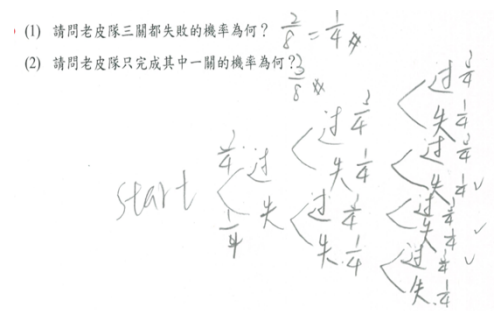 (1) 請問老皮隊三關都失敗的機率為何? 2/8 = 1/4
(2) 請問老皮隊只完成其中一關的機率為何? 3/8
start
3/4 过
1/4 失
过 3/4
失 1/4
过 3/4
失 1/4
过 3/4
失 1/4
过 3/4
失 1/4 ✓
过
失 1/4 ✓
过 ✓
失 1/4